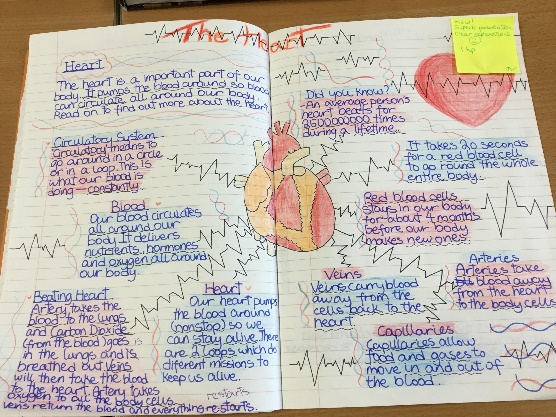 The Heart
Heart
The heart is a important part of our
body. It pumps the blood around so blood
can circulate all around our body.
Read on to find out more about the heart.
Circulatory System
Circulatory means to
go around in a circle
or in a loop. This is
what our blood is
doing - constantly.
Blood
Our blood circulates
all around our
body. It delivers
nutrients, hormones
and oxygen all around
our body.
Beating Heart
Artery takes the
blood to the lungs
and Carbon Dioxide
(from the blood) goes
in the lungs and is
breathed but veins
will then take the blood
to the heart. Artery takes
oxygen to all the body cells.
veins return the blood and everything restarts.
restarts
Heart
Our heart pumps
the blood around
(nonstop) so we
can stay alive. There
are 2 loops which do
different missions to
keep us alive.
Did you know?
-An average person's
heart beats for
2500000000 times
during a lifetime.
It takes 20 seconds
for a red blood cell
to go round the whole
entire body.
Red blood cells
stays in our body
for about 4 months
before our body
makes new ones.
Veins
Veins carry blood
away from the
cells back to the
heart.
Arteries
Arteries take
blood away
from the heart
to the body cells
Capillaries
Capillaries allow
food and gases to
move in and out of
the blood.
Superb presentation